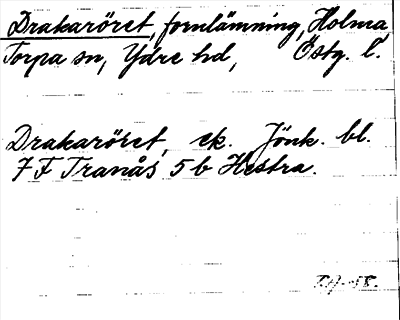 Drakaröret, fornlämning, Holma
Torpa sn, Ydre hd, Östg. l.
Drakaröret, ek. Jönk. bl.
7 F Tranås 5 b Hestra.